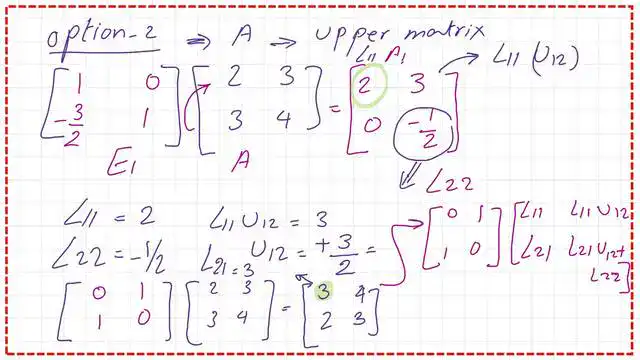 option-2 ⇒ A → Upper matrix
L11 A1
[1 0; -3/2 1] [2 3; 3 4] = [2 3; 0 -1/2] → L11 (U12)
E1 A
L22
L11 = 2 L11 U12 = 3
L22 = -1/2 L21 = 3 U12 = +3/2 =
[0 1; 1 0] [L11 L11 U12; L21 L21 U12 + L22]
[0 1; 1 0] [2 3; 3 4] = [3 4; 2 3]